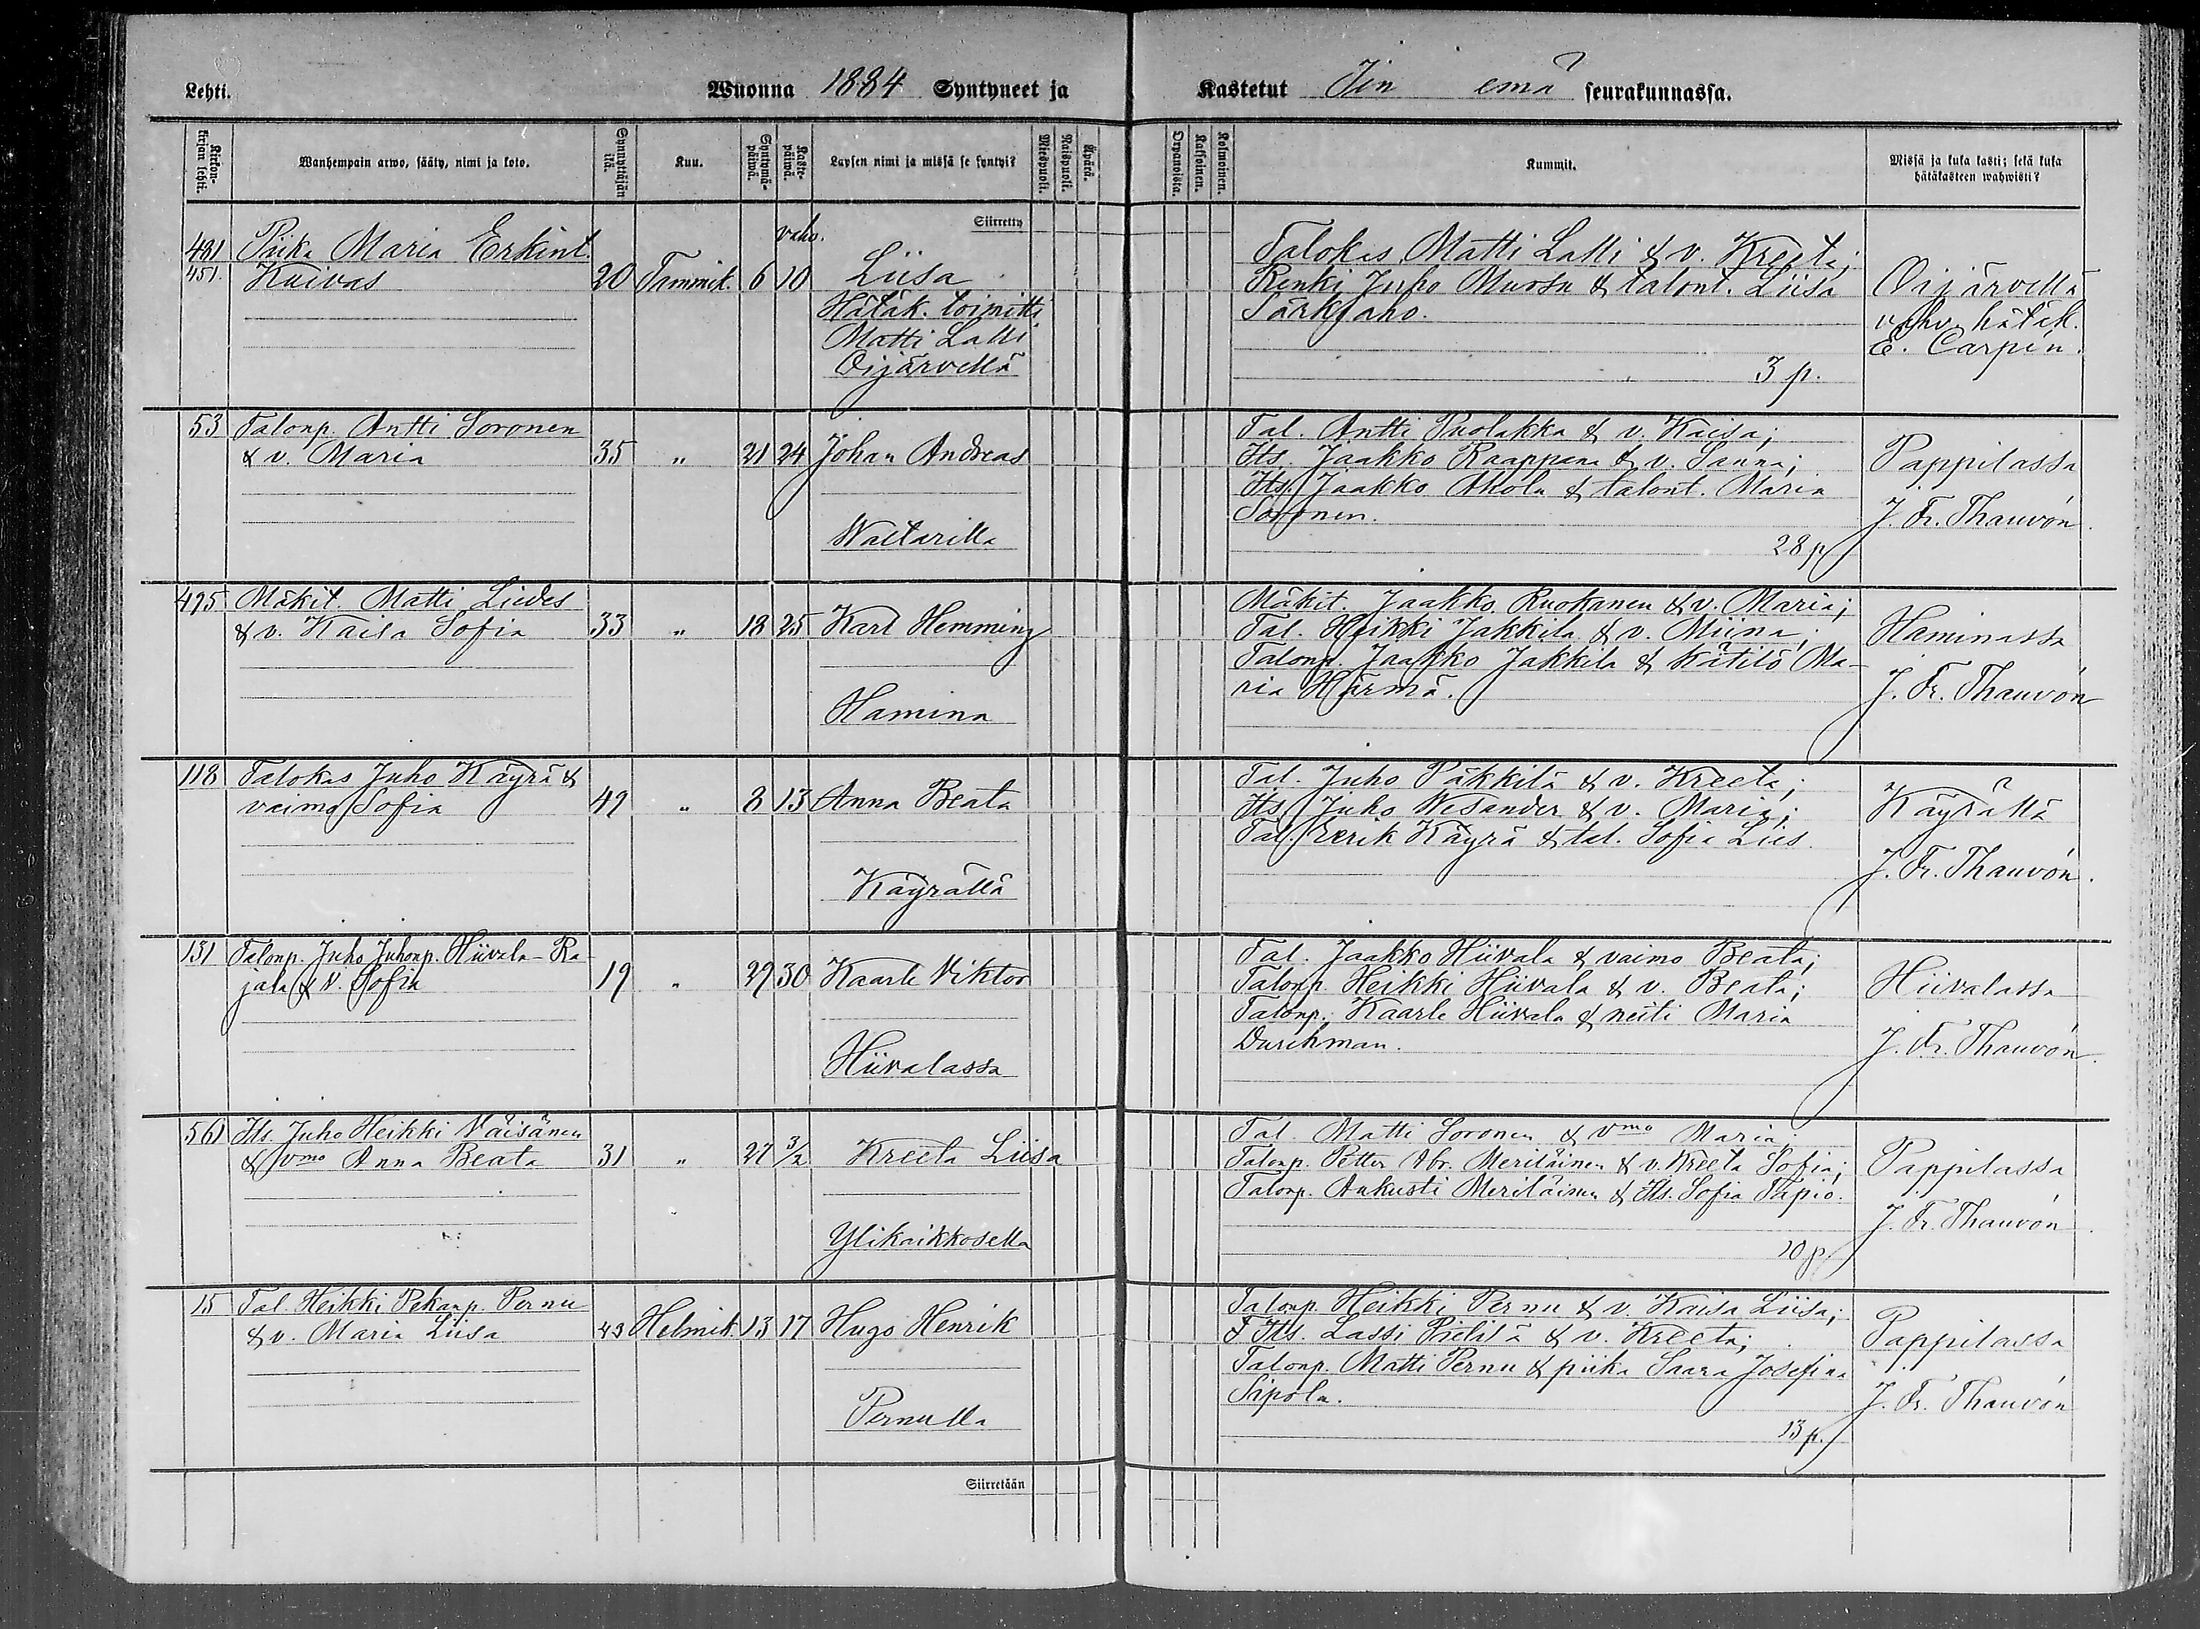 Lehti. Wuonna 1884 Syntyneet ja Kastetut Iin emä seurakunnassa.
Kirkonkirjan lehti. Wanhempain arwo, sääty, nimi ja koto. Synnyttäjän ikä. Kuu. Syntymäpäiwä. Kastepäiwä. Lapsen nimi ja missä se syntyi? Miespuoli. Naispuoli. Äpärä. Orpanoista. Kaksoinen. Kolmoinen. Kummit. Missä ja kuka kasti; sekä kuka hätäkasteen wahwisti?
Siirretty
481 Piika Maria Erkint. vahv.
451. Kaivas 20 Tammik. 6 10 Liisa
Hätäk. toimitti
Matti Lalli
Oijärvellä
Talokas Matti Lalli & v. Kreeta;
Renki Juho Muosu & talont. Liisa
Särkjaho.
3 p.
Oijärvellä
vahv. hätäk.
E. Carpén.
53 Talonp. Antti Soronen
& v. Maria 35 " 21 24 Johan Andreas
Waltarilla
Tal. Antti Puolakka & v. Kaisa;
Its. Jaakko Raappana & v. Sanna;
Its. Jaakko Ahola & talont. Maria
Soronen.
28 p
Pappilassa
J. Fr. Thauvón.
495 Mäkit. Matti Liedes
& v. Kaisa Sofia 33 " 18 25 Karl Hemming
Hamina
Mäkit. Jaakko Ruokanen & v. Maria;
Tal. Heikki Jakkila & v. Miina;
Talonp. Jaakko Jakkila & Kätilö Ma-
ria Härmä.
Haminassa
J. Fr. Thauvón
118 Talokas Juho Käyrä &
vaimo Sofia 49 " 8 13 Anna Beata
Käyrällä
Tal. Juho Päkkilä & v. Kreeta;
Its. Juho Wesander & v. Maria;
Tal. Eerik Käyrä & tal. Sofia Lies.
Käyrällä
J. Fr. Thauvón.
131 Talonp. Juho Juhonp. Hiivala-Ra
jala & v. Sofia 19 " 29 30 Kaarle Viktor
Hiivalassa
Tal. Jaakko Hiivala & vaimo Beata;
Talonp. Heikki Hiivala & v. Beata;
Talonp. Kaarle Hiivala & neiti Maria
Durchman.
Hiivalassa
J. Fr. Thauvón.
561 Its. Juho Heikki Väisänen
& vmo Anna Beata 31 " 27 3/2 Kreeta Liisa
Ylikaikkosella
Tal. Matti Soronen & vmo Maria;
Talonp. Petter Abr. Meriläinen & v. Kreeta Sofia;
Talonp. Aukusti Meriläinen & Its. Sofia Tapio.
10 p.
Pappilassa
J. Fr. Thauvón.
15 Tal. Heikki Pekanp. Pernu
& v. Maria Liisa 43 Helmik. 13 17 Hugo Henrik
Pernulla
Talonp. Heikki Pernu & v. Kaisa Liisa;
Its. Lassi Pielisä & v. Kreeta;
Talonp. Matti Pernu & piika Saara Josefina
Sipola.
13 p.
Pappilassa
J. Fr. Thauvón
Siirretään